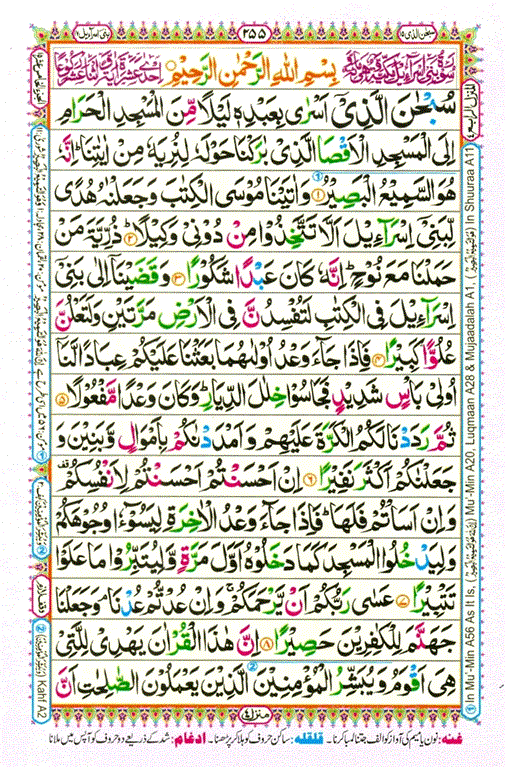 سبحٰن الذی ۱۵
۲۵۵
بنی اسرآءیل ۱۷
بِسْمِ اللّٰهِ الرَّحْمٰنِ الرَّحِیْمِ
سُبْحٰنَ الَّذِیْۤ اَسْرٰی بِعَبْدِهٖ لَیْلًا مِّنَ الْمَسْجِدِ الْحَرَامِ
اِلَی الْمَسْجِدِ الْاَقْصَا الَّذِیْ بٰرَكْنَا حَوْلَهٗ لِنُرِیَهٗ مِنْ اٰیٰتِنَا ؕ اِنَّهٗ
هُوَ السَّمِیْعُ الْبَصِیْرُ ﴿۱﴾ وَاٰتَیْنَا مُوْسَی الْكِتٰبَ وَجَعَلْنٰهُ هُدًی
لِّبَنِیْۤ اِسْرَآءِیْلَ اَلَّا تَتَّخِذُوْا مِنْ دُوْنِیْ وَكِیْلًا ﴿۲﴾ ذُرِّیَّةَ مَنْ
حَمَلْنَا مَعَ نُوْحٍ ؕ اِنَّهٗ كَانَ عَبْدًا شَكُوْرًا ﴿۳﴾ وَقَضَیْنَاۤ اِلٰی بَنِیْۤ
اِسْرَآءِیْلَ فِی الْكِتٰبِ لَتُفْسِدُنَّ فِی الْاَرْضِ مَرَّتَیْنِ وَلَتَعْلُنَّ
عُلُوًّا كَبِیْرًا ﴿۴﴾ فَاِذَا جَآءَ وَعْدُ اُوْلٰىهُمَا بَعَثْنَا عَلَیْكُمْ عِبَادًا لَّنَاۤ
اُولِیْ بَاْسٍ شَدِیْدٍ فَجَاسُوْا خِلٰلَ الدِّیَارِ ؕ وَكَانَ وَعْدًا مَّفْعُوْلًا ﴿۵﴾
ثُمَّ رَدَدْنَا لَكُمُ الْكَرَّةَ عَلَیْهِمْ وَاَمْدَدْنٰكُمْ بِاَمْوَالٍ وَّبَنِیْنَ وَ
جَعَلْنٰكُمْ اَكْثَرَ نَفِیْرًا ﴿۶﴾ اِنْ اَحْسَنْتُمْ اَحْسَنْتُمْ لِاَنْفُسِكُمْ
وَاِنْ اَسَاْتُمْ فَلَهَا ؕ فَاِذَا جَآءَ وَعْدُ الْاٰخِرَةِ لِیَسُوْٓءٗا وُجُوْهَكُمْ
وَلِیَدْخُلُوا الْمَسْجِدَ كَمَا دَخَلُوْهُ اَوَّلَ مَرَّةٍ وَّلِیُتَبِّرُوْا مَا عَلَوْا
تَتْبِیْرًا ﴿۷﴾ عَسٰی رَبُّكُمْ اَنْ یَّرْحَمَكُمْ ۚ وَاِنْ عُدْتُّمْ عُدْنَا ۘ وَجَعَلْنَا
جَهَنَّمَ لِلْكٰفِرِیْنَ حَصِیْرًا ﴿۸﴾ اِنَّ هٰذَا الْقُرْاٰنَ یَهْدِیْ لِلَّتِیْ
هِیَ اَقْوَمُ وَیُبَشِّرُ الْمُؤْمِنِیْنَ الَّذِیْنَ یَعْمَلُوْنَ الصّٰلِحٰتِ اَنَّ
منزل ۴
غنه: نون یا میم کی آواز کو الف جتنا لمبا کرنا۔ قلقله: ساکن حروف کو ہلا کر پڑھنا۔ ادغام: شد کے ذریعے دو حروف کو آپس میں ملانا
In Mu'-Min A56 As It Is. In Mu'-Min A20, Luqmaan A28 & Mujaadalah A1, In Shuuraa A11
Kahf A2